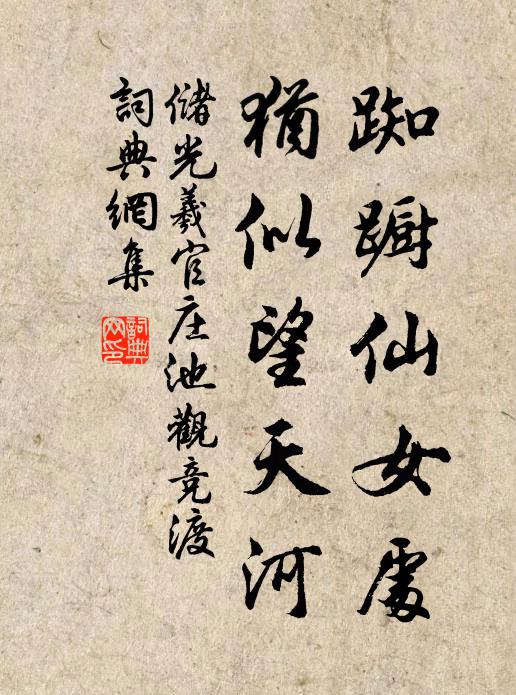 踟蹰仙女處
猶似望天河
儲光羲官庄池觀竞渡
詞典網集
詞典网印